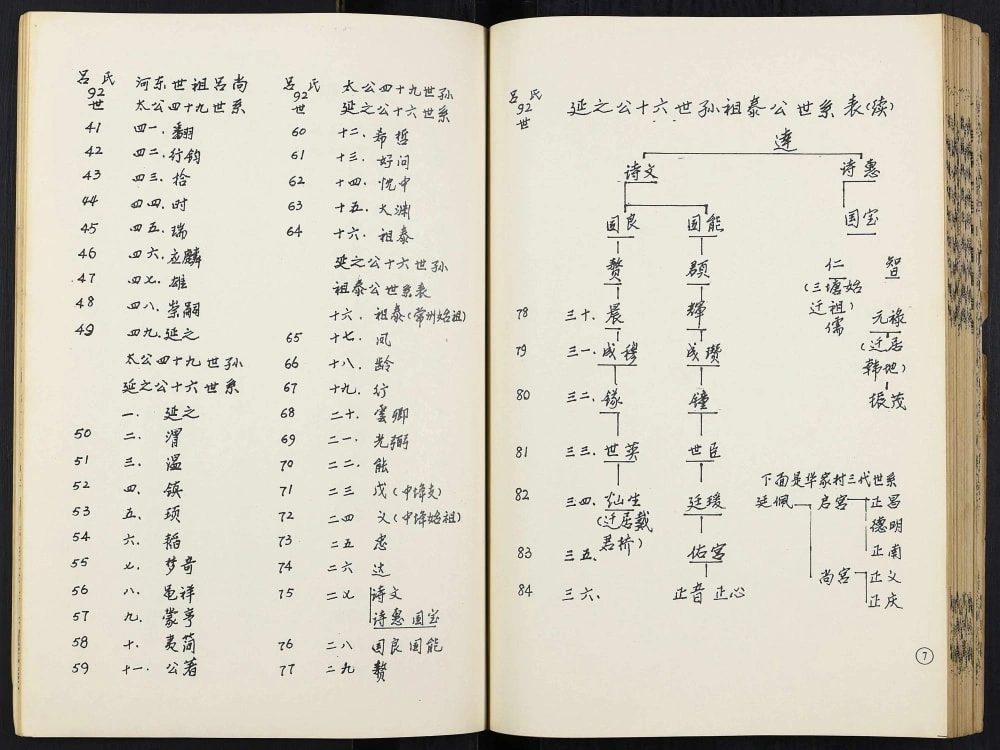 吕氏92世 河东世祖吕尚
太公四十九世系
41 四一.翻
42 四二.行钧
43 四三.拾
44 四四.时
45 四五.瑞
46 四六.应麟
47 四七.雄
48 四八.崇嗣
49 四九.延之
太公四十九世孙
延之公十六世系
一.延之
50 二.渭
51 三.温
52 四.镇
53 五.顼
54 六.韬
55 七.梦奇
56 八.龟祥
57 九.蒙亨
58 十.夷简
59 十一.公著
吕氏92世 太公四十九世孙
延之公十六世系
60 十二.希哲
61 十三.好问
62 十四.忱中
63 十五.大渊
64 十六.祖泰
延之公十六世孙
祖泰公世系表
十六.祖泰(常州始祖)
65 十七.凤
66 十八.龄
67 十九.行
68 二十.雲卿
69 二一.光弼
70 二二.能
71 二三 戊(中埄支)
72 二四 义(中埄始祖)
73 二五 忠
74 二六 达
75 二七 诗文
诗惠 国宝
76 二八 国良 国能
77 二九 赘
吕氏92世
延之公十六世孙祖泰公世系表(续)
達
诗文 诗惠
国良 国能 国宝
赘 颢 仁(三塘始迁祖) 智
78 三十.晨 輝 儒 元禄(迁居韩地)
79 三一.成穆 成瓒
80 三二.铩 鐘 振茂
81 三三.世英 世臣
下面是华家村三代世系
82 三四.灿生(迁居戴君桥) 廷瑗 廷佩 启宫 正昌
德明
正南
83 三五. 佑宫 尚宫 正义
84 三六. 正音 正心 正庆
7